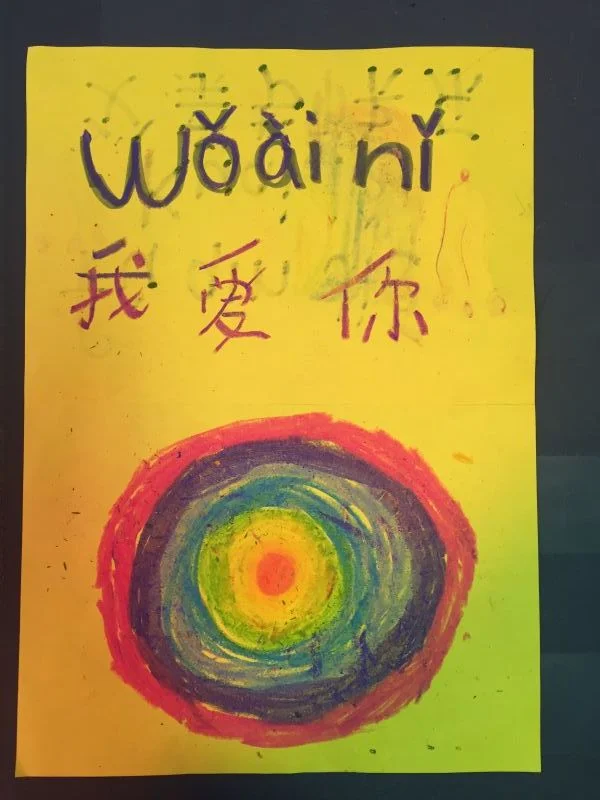 wǒ ài nǐ
我 爱 你